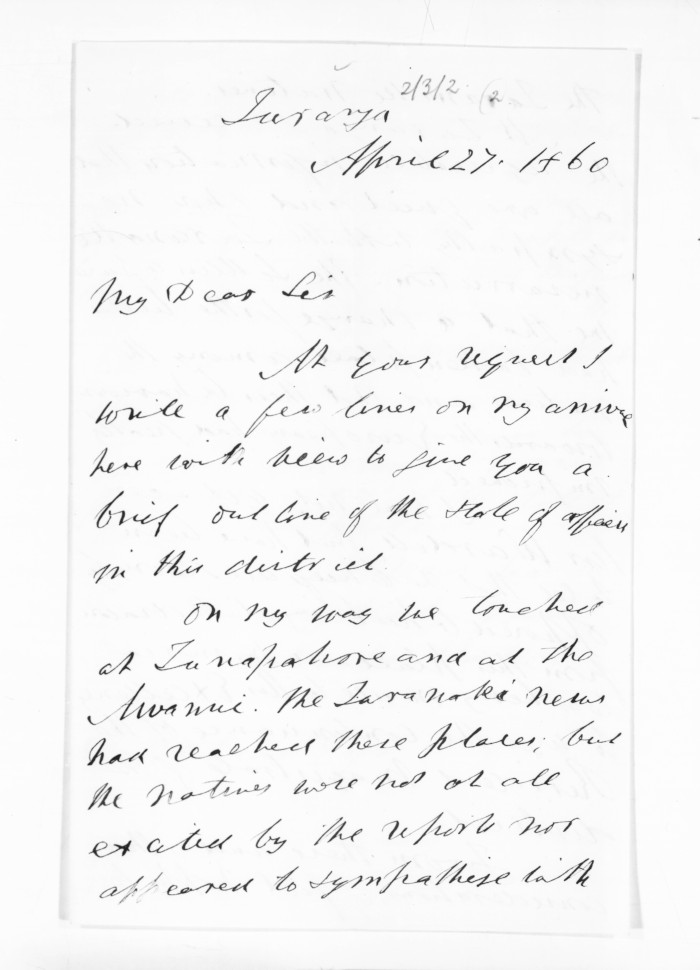 2/3/2 (2
Turanga
April 27. 1860
My Dear Sir
At your request I
write a few lines on my arrival
here with view to give you a
brief outline of the state of affairs
in this district.
On my way we touched
at Tunapahore and at the
Awanui. The Taranaki news
had reached these places; but
the natives were not at all
excited by the reports nor
appeared to sympathise with